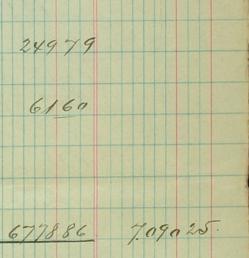 24979
6160
677886 7.09025.